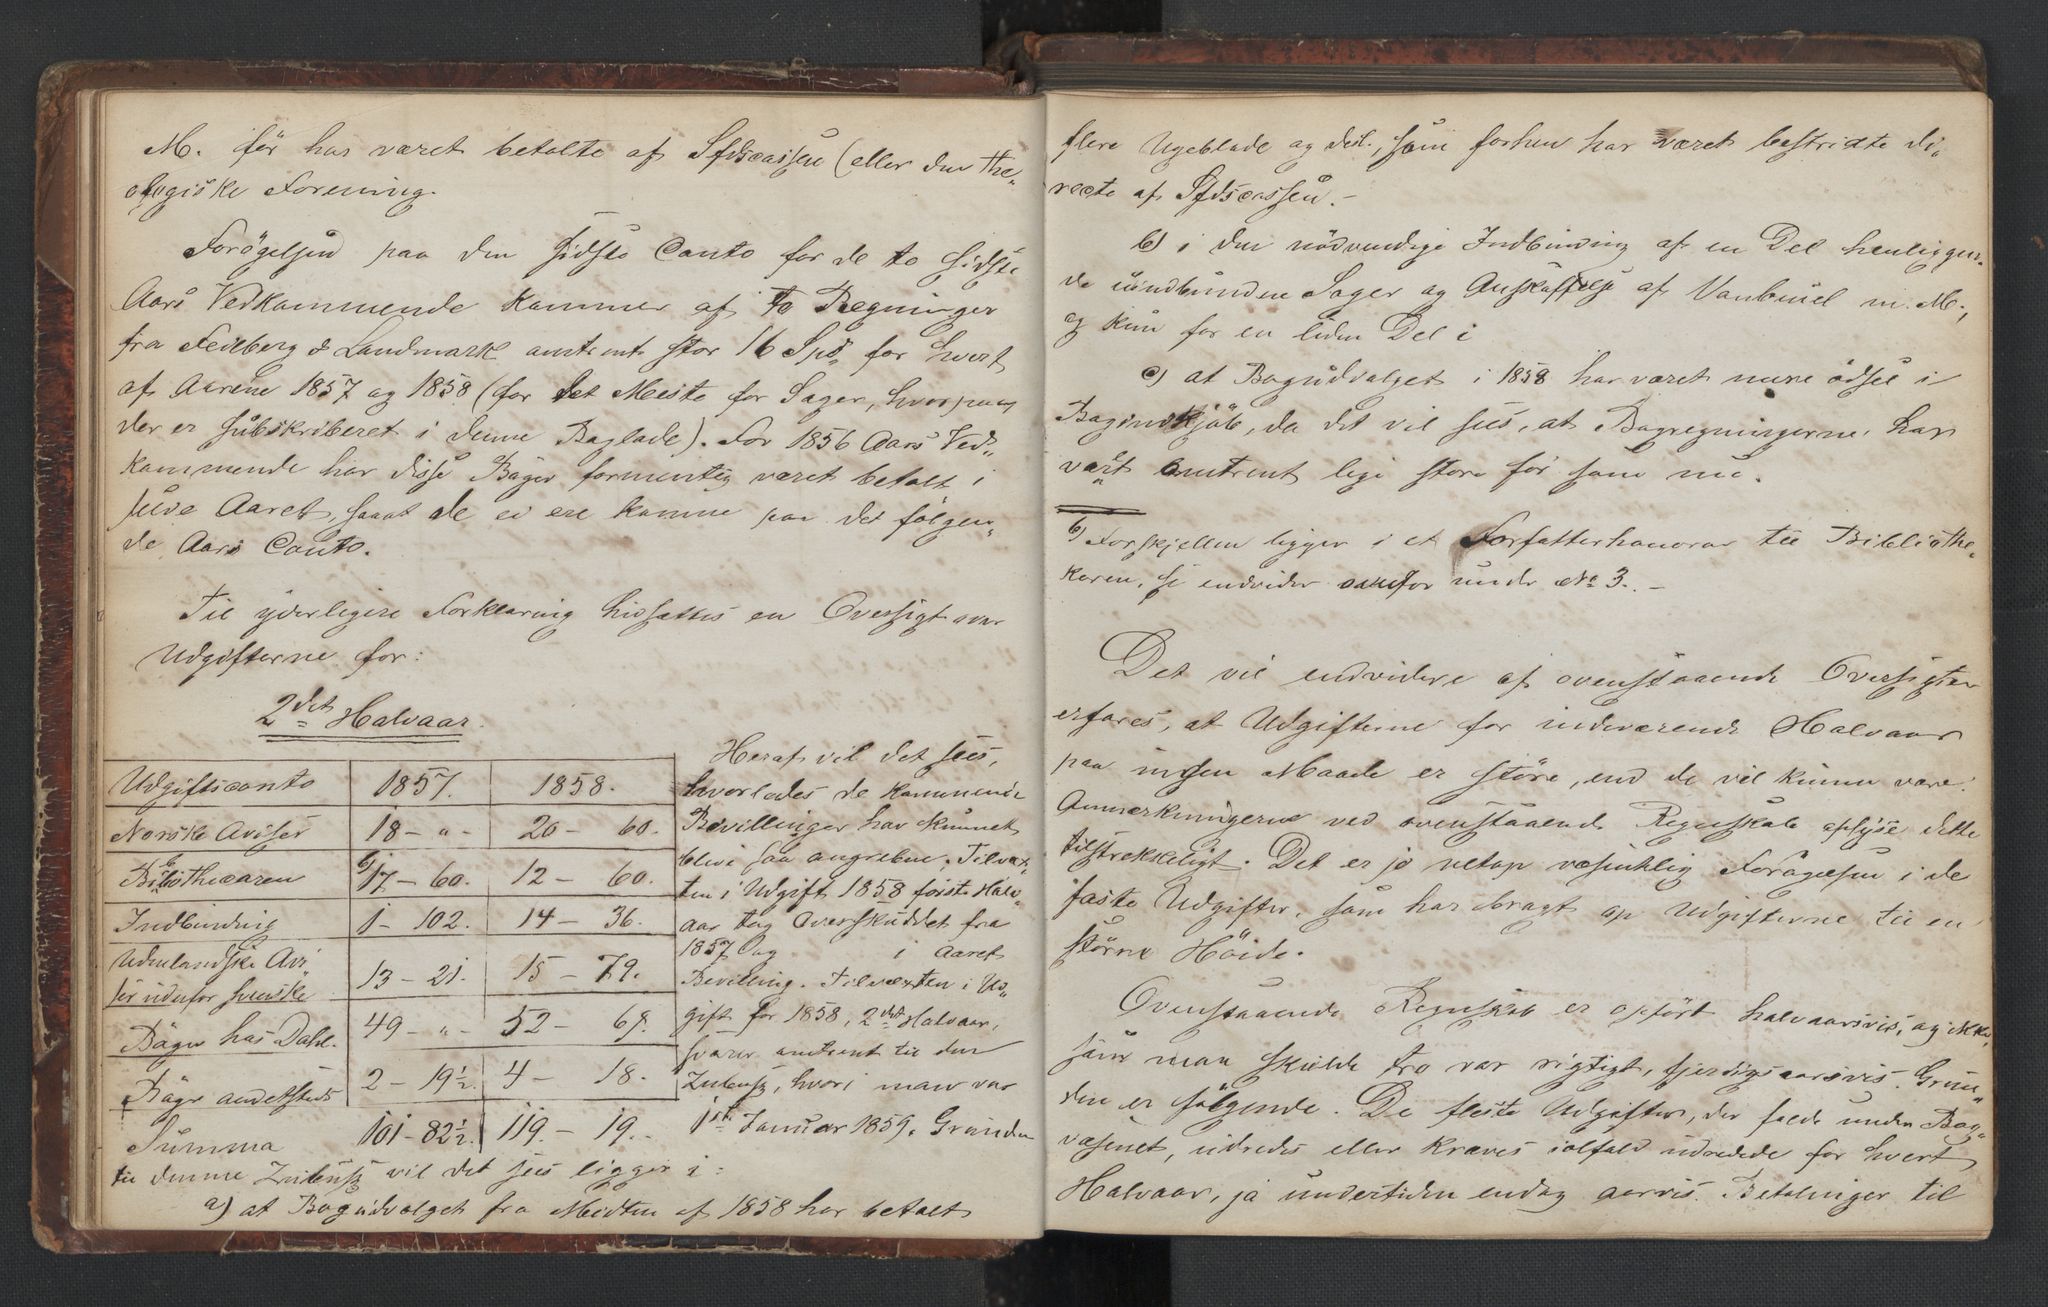 M. før har været betalte af Sfdscassen (eller den the„
ologiske Forening.
Forögelsen paa den sidste Conto for de to sidste
Aars Vedkommende kommer af to Regninger
fra Feilberg & Landmark omtrent stor 16 Spd„ for hvert
af Aarene 1857 og 1858 (for det Meste for Sager, hvorpaa
der er subskriberet i denne Boglade). For 1856 Aars Ved„
kommende har disse Bøger formentlig været betalt i
selve Aaret, saa at de ei ere komne paa det følgen„
de Aars Conto.
Til yderligere Forklaring hidsættes en Oversigt over
Udgifterne for:
2det Halvaar.
Udgiftsconto 1857. 1858.
Norske Aviser 18 – „ – 20 – 60.
Bibliothecaren b) 17 – 60. 12 – 60.
Indbinding 1 – 102. 14 – 36.
Udenlandske Avi„
ser udenfor svenske 13 – 21. 15 – 79.
Bøger hos Dahl. 49 – „ – 52 – 68.
Bøger andetsteds 2 – 19½ 4 – 18.
Summa 101 – 82½ 119 – 19.
Heraf vil det sees,
hvorledes de kommende
Bevillinger har kunnet
blive saa angrebne. Tilvæx„
ten i Udgift 1858 første Halv„
aar tog Overskuddet fra
1857 og i Aaret
Bevilling. Tilvæxten i Ud„
gift for 1858, 2det Halvaar,
svarer omtrent til den
Zubusz, hvori man var
1ste Januar 1859. Grunden
til denne Zubusz vil det sees ligger i:
a) at Bogudvalget fra Midten af 1858 har betalt
flere Ugeblade og desl., som forhen har været bestridte di„
recte af Sfdscassen. –
b) i den nødvendige Indbinding af en Del henliggen„
de uindbundne Sager og Anskaffelse af m. M.;
og kun for en liden Del i
c) at Bogudvalget i 1858 har været mere ödsel i
Bogindkjøb, da det vil sees, at Bogregningerne har
vært omtrent lige store før som nu.
b) Forskjellen ligger i et Forfatterhonorar til Bibliothe„
karen, se endvider ovenfor under No 3. –
Det vil endvidere af ovenstaaende Oversigter
erfares, at Udgifterne for indeværende Halvaar
paa ingen Maade er större, end de vil kunne være.
Anmærkningerne ved ovenstaaende Regnskab oplyse dette
tilstrekkeligt. Det er jo netop væsentlig Forøgelsen i de
faste Udgifter, som har bragt op Udgifterne til en
större Höide.
Ovenstaaende Regnskab er opført halvaarsvis, og ikke,
som man skulde tro var rigtigt, fjerdingsaarsvis. Grun„
den er følgende. De fleste Udgifter, der falde under Bog„
væsenet, udredes eller kræves ialfald udredede for hvert
Halvaar, ja undertiden endog aarvis. Betalinger til